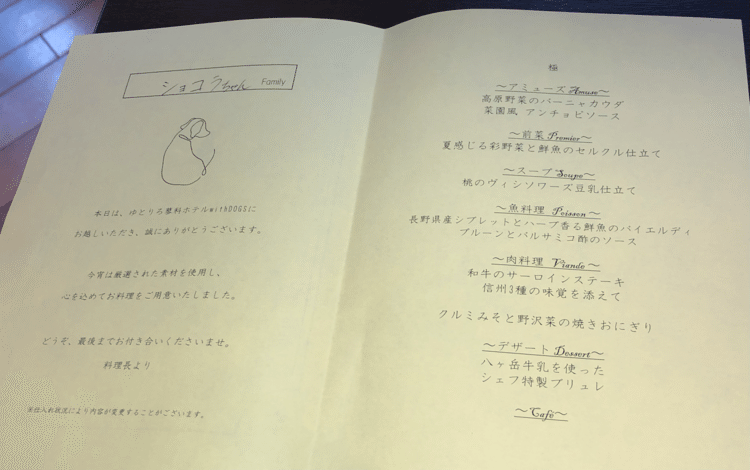 ショコラちゃん Family
本日は、ゆとりろ蓼科ホテルwithDOGSに
お越しいただき、誠にありがとうございます。
今宵は厳選された素材を使用し、
心を込めてお料理をご用意いたしました。
どうぞ、最後までお付き合いくださいませ。
料理長より
※仕入れ状況により内容が変更することがございます。
極
～アミューズ Amuse～
高原野菜のバーニャカウダ
菜園風 アンチョビソース
～前菜 Premier～
夏感じる彩野菜と鮮魚のセルクル仕立て
～スープ Soupe～
桃のヴィシソワーズ豆乳仕立て
～魚料理 Poisson～
長野県産シブレットとハーブ香る鮮魚のバイエルディ
プルーンとバルサミコ酢のソース
～肉料理 Viande～
和牛のサーロインステーキ
信州3種の味覚を添えて
クルミみそと野沢菜の焼きおにぎり
～デザート Dessert～
八ヶ岳牛乳を使った
シェフ特製ブリュレ
～Café～